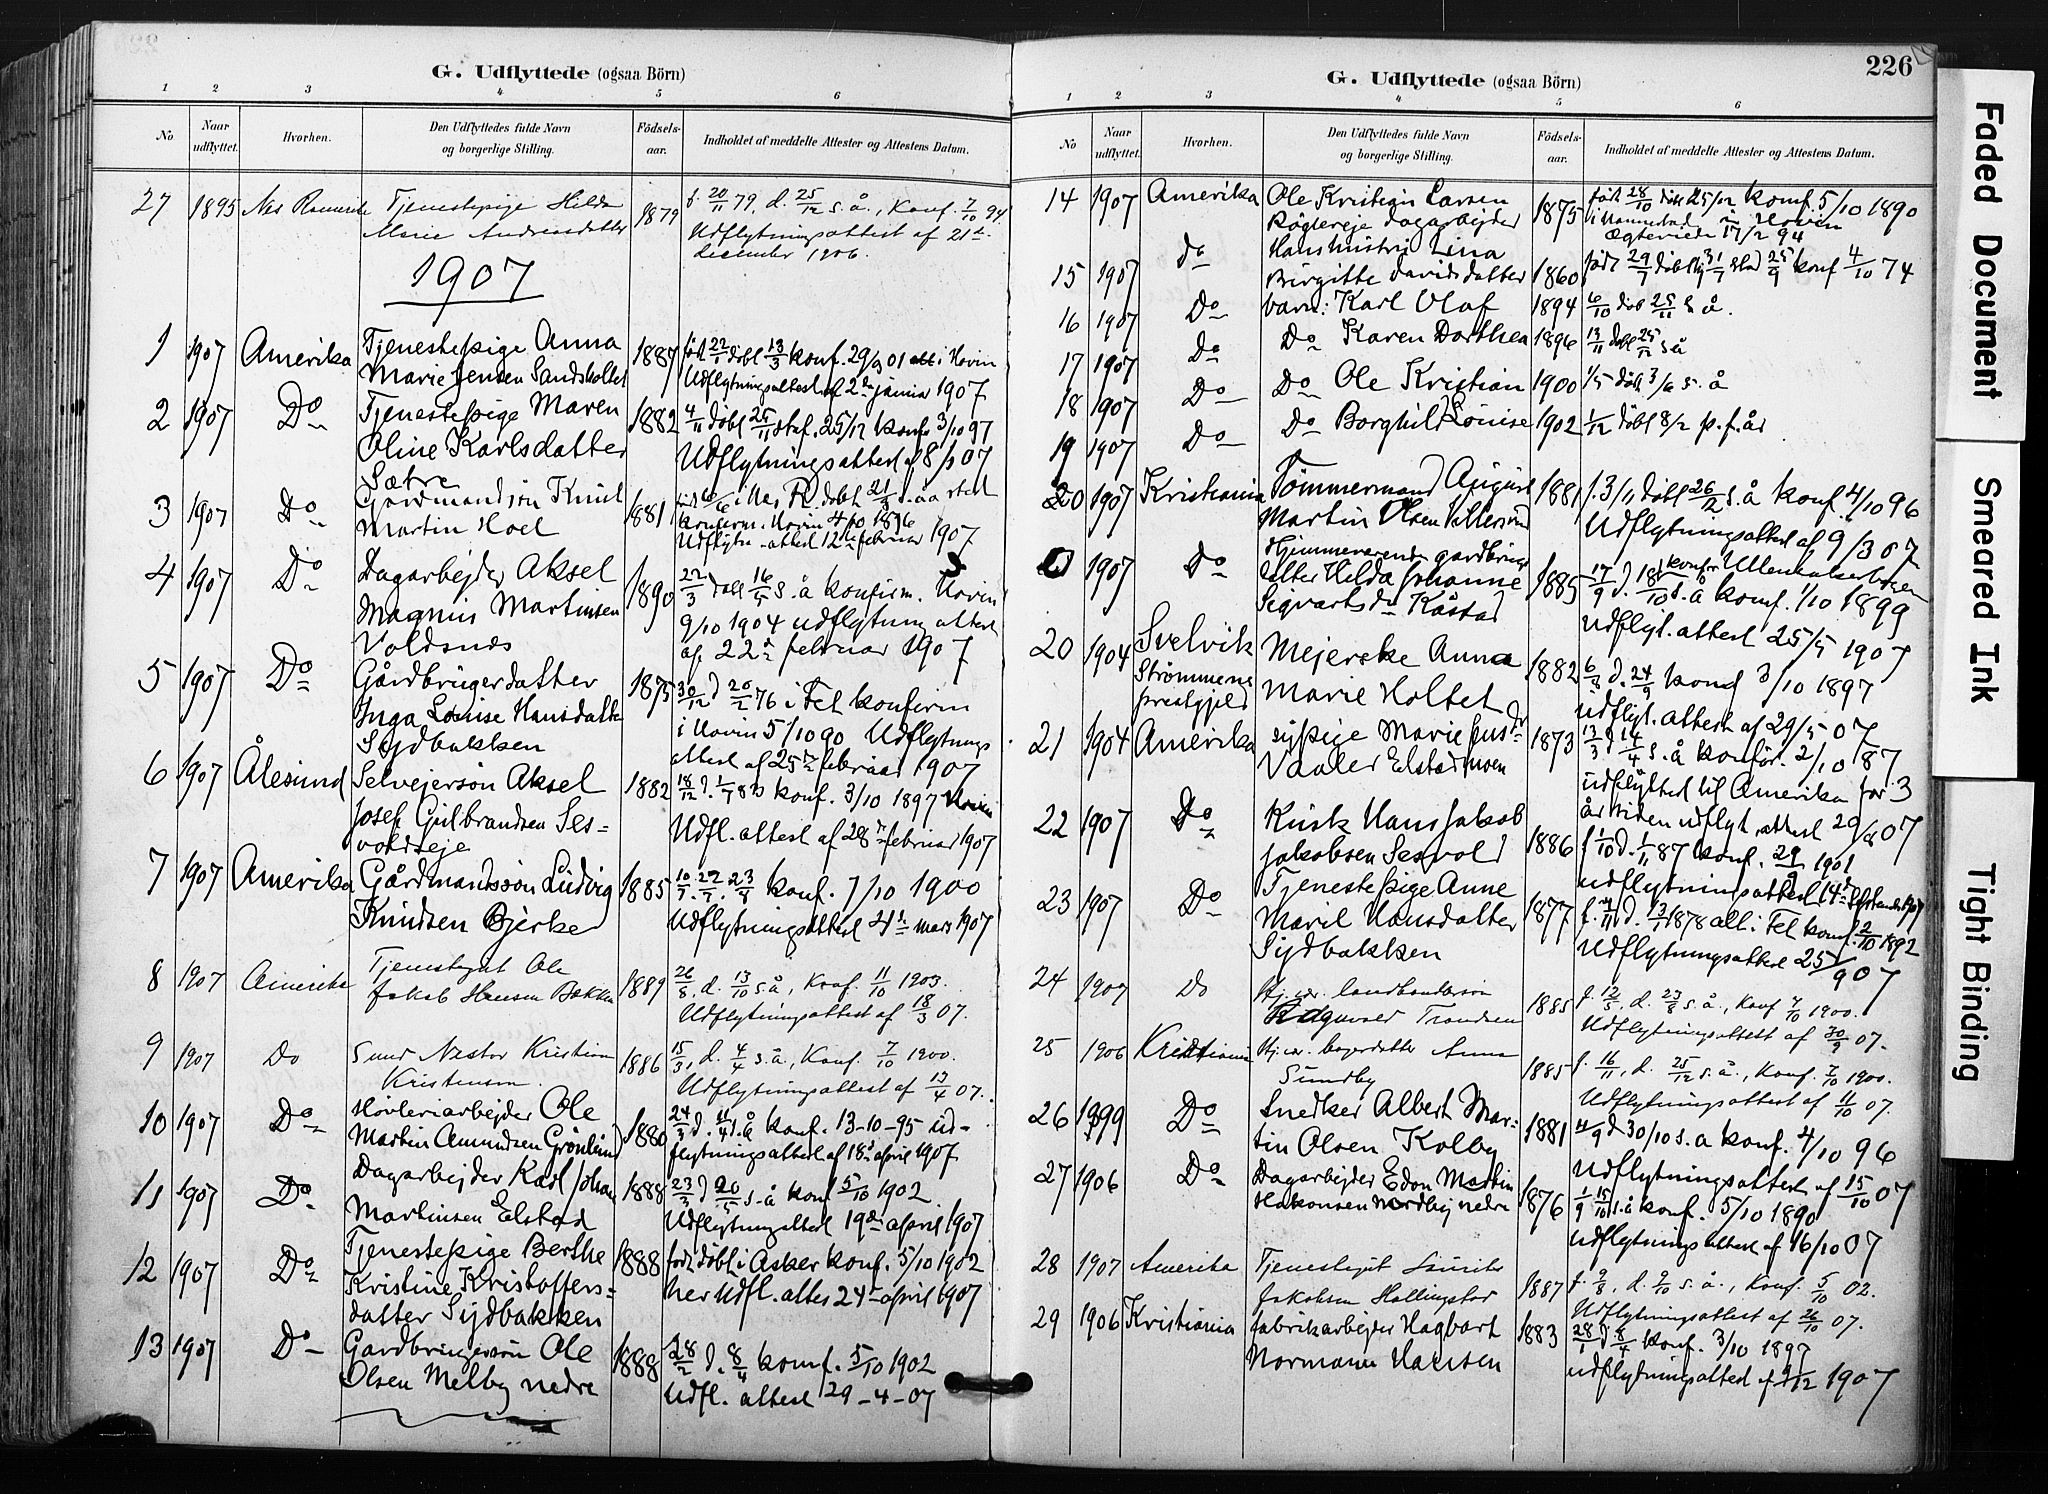 G. Udflyttede (ogsaa Börn)
1 2 3 4 5 6
No
Naar udflyttet.
Hvorhen.
Den Udflyttedes fulde Navn og borgerlige Stilling.
Födsels-aar.
Indholdet af meddelte Attester og Attestens Datum.
27 1895 Nes Romerike Tjenestepige Hilda 1879 f. 20/11 79, d. 25/12 s. å., Konf. 7/10 94
Marie Andreasdatter Udflytningsattest af 21de
december 1906.
1907
1 1907 Amerika Tjenestepige Anna 1887 født 22/1 døbt 13/3 konf. 29/9 01 i Hovin
Marie Jensen Sandsholtet Udflytningsattest af 2den januar 1907
2 1907 Do Tjenestepige Maren 1882 4/11 døbt 25/11 konf 3/10 97
Oline Karlsdatter Udflytningsattest af 8/1 07
Sætre
3 1907 Do Gårdmandssön Knut 1881 i Nes R. døbt 21/8 s. å. sted
Martin Hoel Konfirm. Hovin 4/10 1896
Udflytn-attest 12te februar 1907
4 1907 Do Dagarbejder Aksel 1890 22/3 døbt 16/5 s. å konfirm. Hovin
Magnus Martinsen 9/10 1904 udflytning attest
Voldsnes af 22de februar 1907
5 1907 Do Gårdbrugerdatter 1875 30/12 d 20/2 76 i Fet konfirm
Inga Louise Hansdatter i Hovin 5/10 90 Udflytnings
Sydbakken attest af 25de februar 1907
6 1907 Ålesund Selvejersön Aksel 1882 18/12 d. 1/7 83 konf. 3/10 1897 Hovin
Josef Gulbrandsen Ses= Udfl. attest af 28de februar 1907
voldseje
7 1907 Amerika Gårdmandssön Ludvig 1885 konf. 7/10 1900
Knudsen Bjerke Udflytningsattest 21de mars 1907
8 1907 Amerika Tjenestegut Ole 1889 26/8, d. 13/10 s. å, Konf. 11/10 1903.
Jakob Hansen Bakken Udflytningsattest af 18/3 07.
9 1907 Do Smed Nestor Kristian 1886 15/3, d. 4/4 s. å, Konf. 7/10 1900.
Kristensen. Udflytningsattest af 13/4 07.
10 1907 Do Høvleriarbejder Ole 1880 24/3 d. 11/4 s. å konf. 13-10-95 ud-
Martin Amundsen Grönlund flytningsattest af 18de april 1907
11 1907 Do Dagarbejder Karl Johan 1888 23/3 d 20/5 s. å konf 5/10 1902
Martinsen Elstad Udflytningattest 19de april 1907
12 1907 Do Tjenestepige Berthe 1888 född døbt i Asker konf. 5/10 1902
Kristine Kristoffers= her Udfl. attes 24de april 1907
datter Sydbakken
13 1907 Do Gårdbrugersön Ole 1888 28/2 d. 8/4 konf. 5/10 1902
Olsen Melby nedre Udfl. attest 29-4-07
226
G. Udflyttede (ogsaa Börn)
1 2 3 4 5 6
No
Naar udflyttet.
Hvorhen.
Den Udflyttedes fulde Navn og borgerlige Stilling.
Födsels-aar.
Indholdet af meddelte Attester og Attestens Datum.
14 1907 Amerika Ole Kristian Larsen 1875 født 28/10 döbt 25/12 konf. 5/10 1890
dagarbejder i Hovin
Ægteviede 17/2 94
15 1907 do Hans hustru Lina
Birgitte Davidsdatter 1860 född 29/7 konf 4/10 74
16 1907 Do barn: Karl Olaf 1894 6/10 döb 25/11 s å.
17 1907 Do Do Karen Dorthea 1896 13/11 döbt 25/12 s å
18 1907 Do Do Ole Kristian 1900 1/5 döbt 3/6 s. å
19 1907 Do Do Borghild Louise 1902 1/12 döbt 8/2 p. f. år
20 1907 Kristiania Tömmermand August 1881 f. 3/11 döbt 26/12 s. å konf. 4/10 96
Martin Olsen Udflytningsattest af 9/3 07
1907 Do Hjemmeværende gårdbrug
datter Hilda Johanne 1885 17/9 d. 18/10 s. å konf. 1/10 1899
Sigvartsdr Kåstad udflyt. attest 25/5 1907
20 1904 Svelvik Mejerske Anna 1882 6/8 d. 24/9 konf 3/10 1897
Strömmens Marie Holtet udflyt. attest af 29/5 07
prestgjeld
21 1904 Amerika sypige Marie 1873 13/3 d 14/4 s. å konför. 2/10 87
Vaaler Elstad udflyttet til Amerika for 3
år siden udflyt. attest 20/8 07
22 1907 Do Kusk Hans Jakob 1886 f 1/10 d. 1/11 87 konf. 29/9 1901
Jakobsen Sesvold udflytningsattest 14de September 1907
23 1907 Do Tjenestepige Anne 1877 1878 alt i Fet konf. 2/10 1892
Maril Hansdatter Udflytningsattest 25/9 07
Sydbakken
24 1907 Do Hj. vær. landhandlersön 1885 f. 12/5, d. 23/8 s. å., Konf 7/10 1900.
Ragnvald Trondsen Udflytningsattest af 30/9 07.
25 1906 Kristiania Hj. vær. bagerdatter Anna 1885 f. 16/11, d. 25/12 s. å., Konf. 7/10 1900.
Sundby Udflytningsattest af 11/10 07.
26 1899 Do Snedker Albert Mar- 1881 4/9 d 30/10 s. a konf. 4/10 96
tin Olsen Kolby Udflytningsattest af 15/10 07
27 1906 Do Dagarbejder Edon Martin 1876 1/9 15/10 s. å konf. 5/10 1890
Hakonsen Nordby nedre udflytningsattest af 16/10 07
28 1907 Amerika Tjenestegut Lauritz 1887 f. 9/8, d. 9/10 s. å., Konf. 5/10 02.
Jakobsen Hallingstad Udflytningsattest af 26/10 07.
29 1906 Kristiania fabrikarbejder Hagbart 1883 28/1 d 8/4 konf. 3/10 1897
Normann Hansen udflytningsattest af 1907
Faded Document
Smeared Ink
Tight Binding